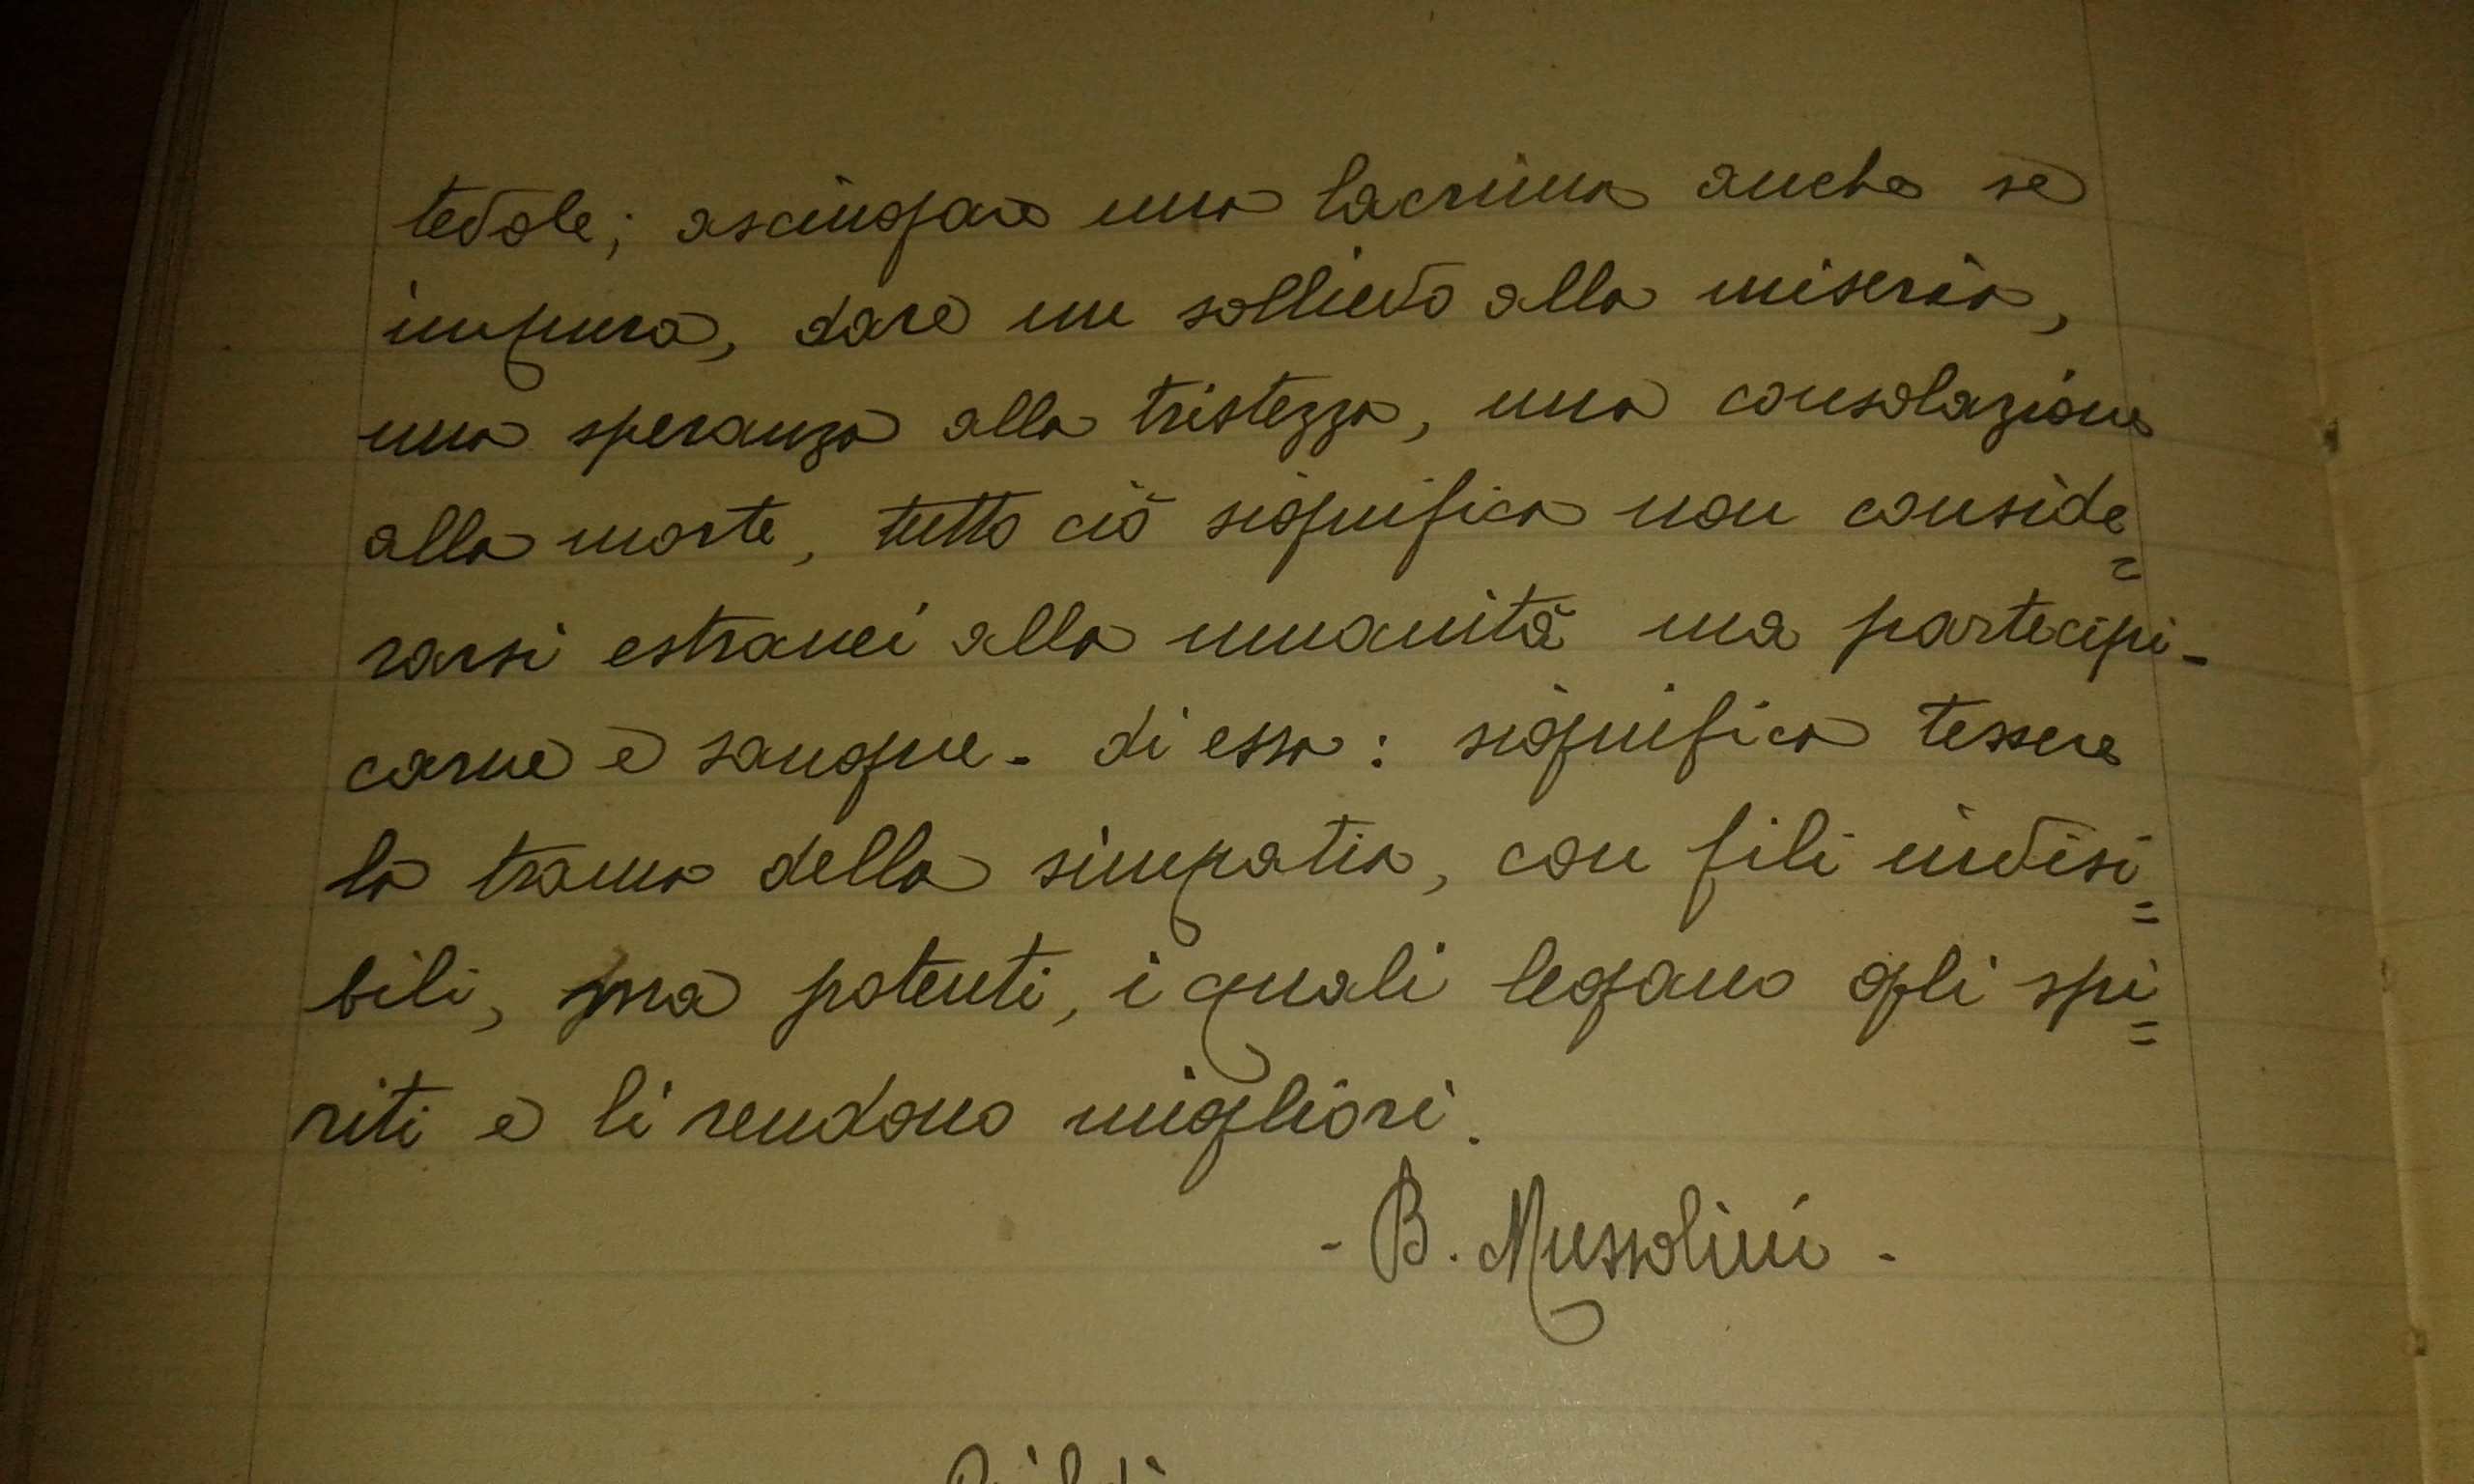 tevole; asciugare una lacrima anche se
impura, dare un sollievo alla miseria,
una speranza alla tristezza, una consolazione
alla morte, tutto ciò significa non conside=
rarsi estranei alla umanità ma partecipi-
carne e sangue - di essa: significa tessere
la trama della simpatia, con fili invisi=
bili, ma potenti, i quali legano gli spi=
riti e li rendono migliori.
- B. Mussolini -